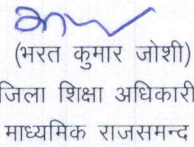 (भरत कुमार जोशी)
जिला शिक्षा अधिकारी
माध्यमिक राजसमन्द